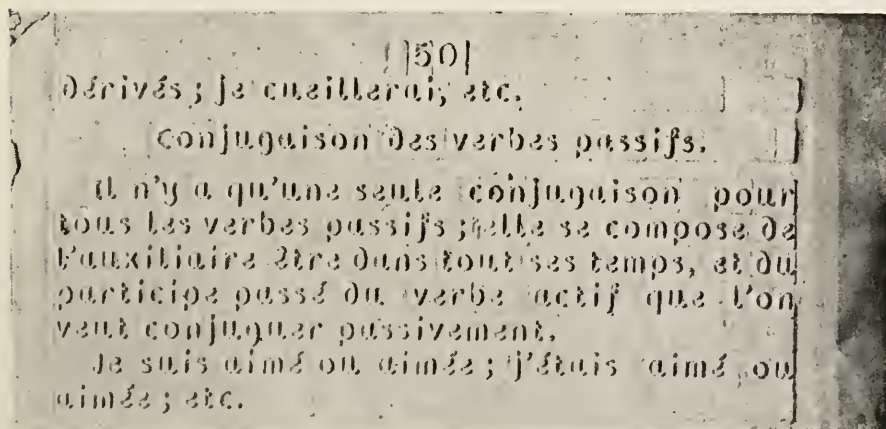 |50|
dérivés ; je cueillerai, etc.
conjugaison des verbes passifs.
il n'y a qu'une seule conjugaison pour
tous les verbes passifs ; elle se compose de
l'auxiliaire être dans tout ses temps, et du
participe passé du verbe actif que l'on
veut conjuguer passivement.
Je suis aimé ou aimée ; j'étais aimé ou
aimée ; etc.